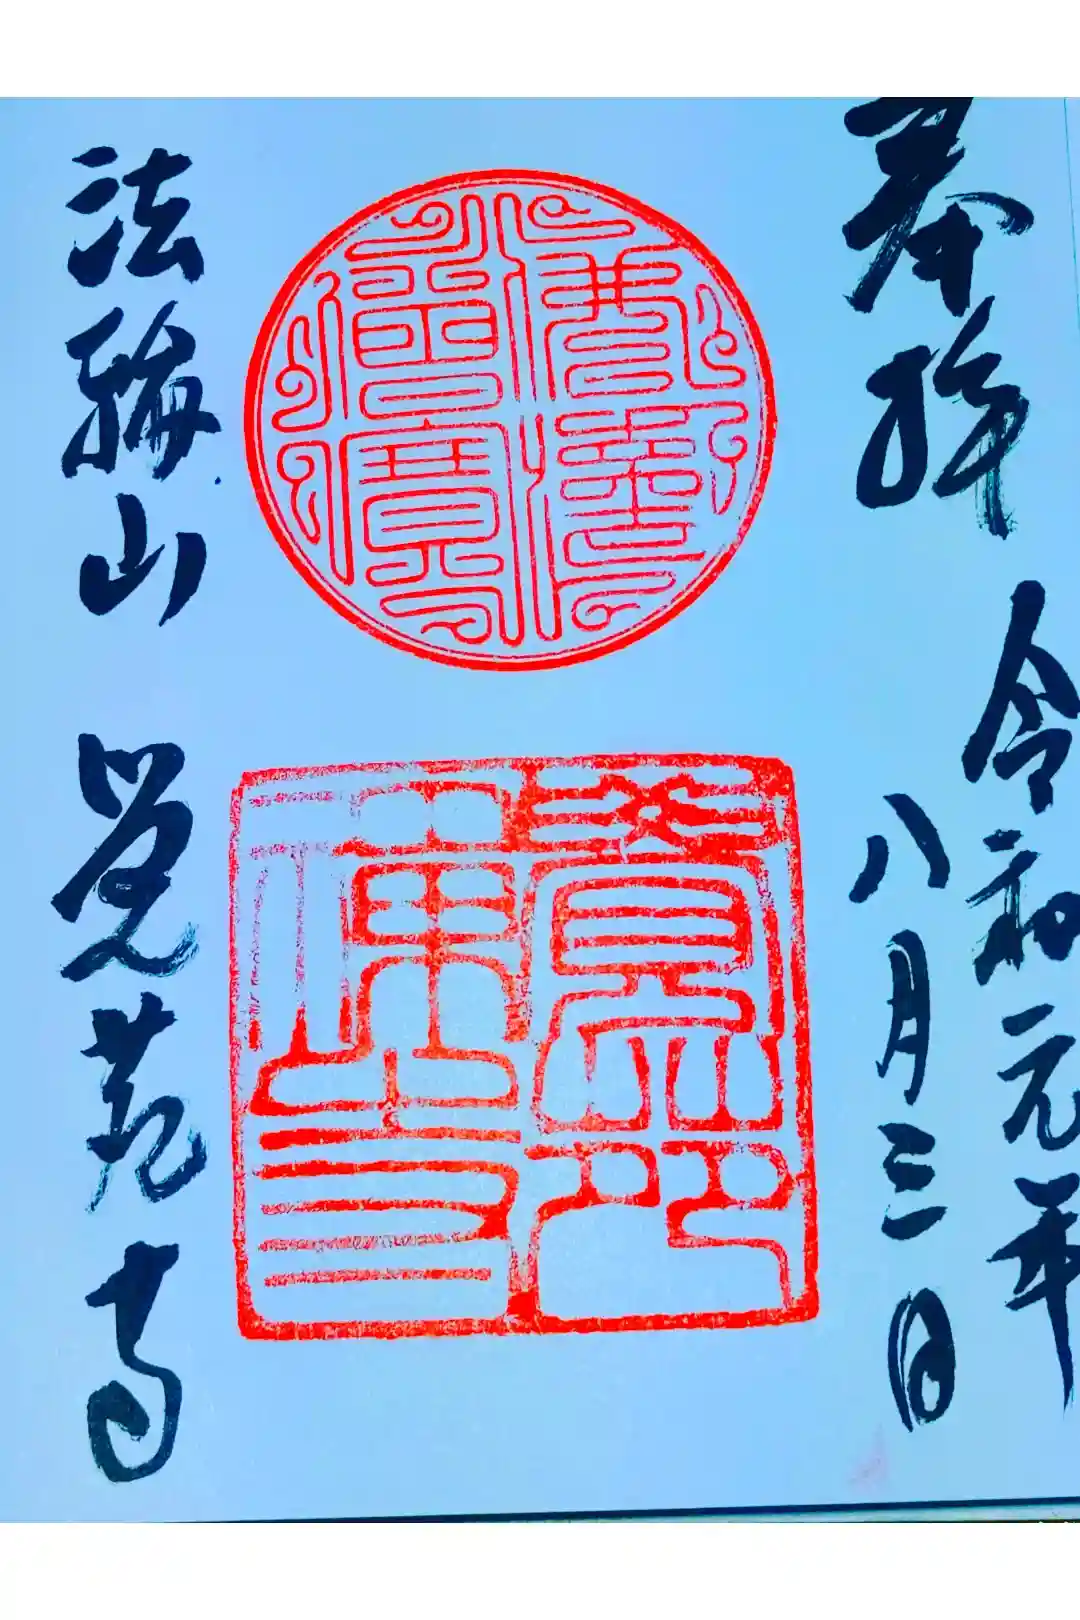 奉拝
令和元年
八月三日
佛法僧寶
法輪山
覚苑寺